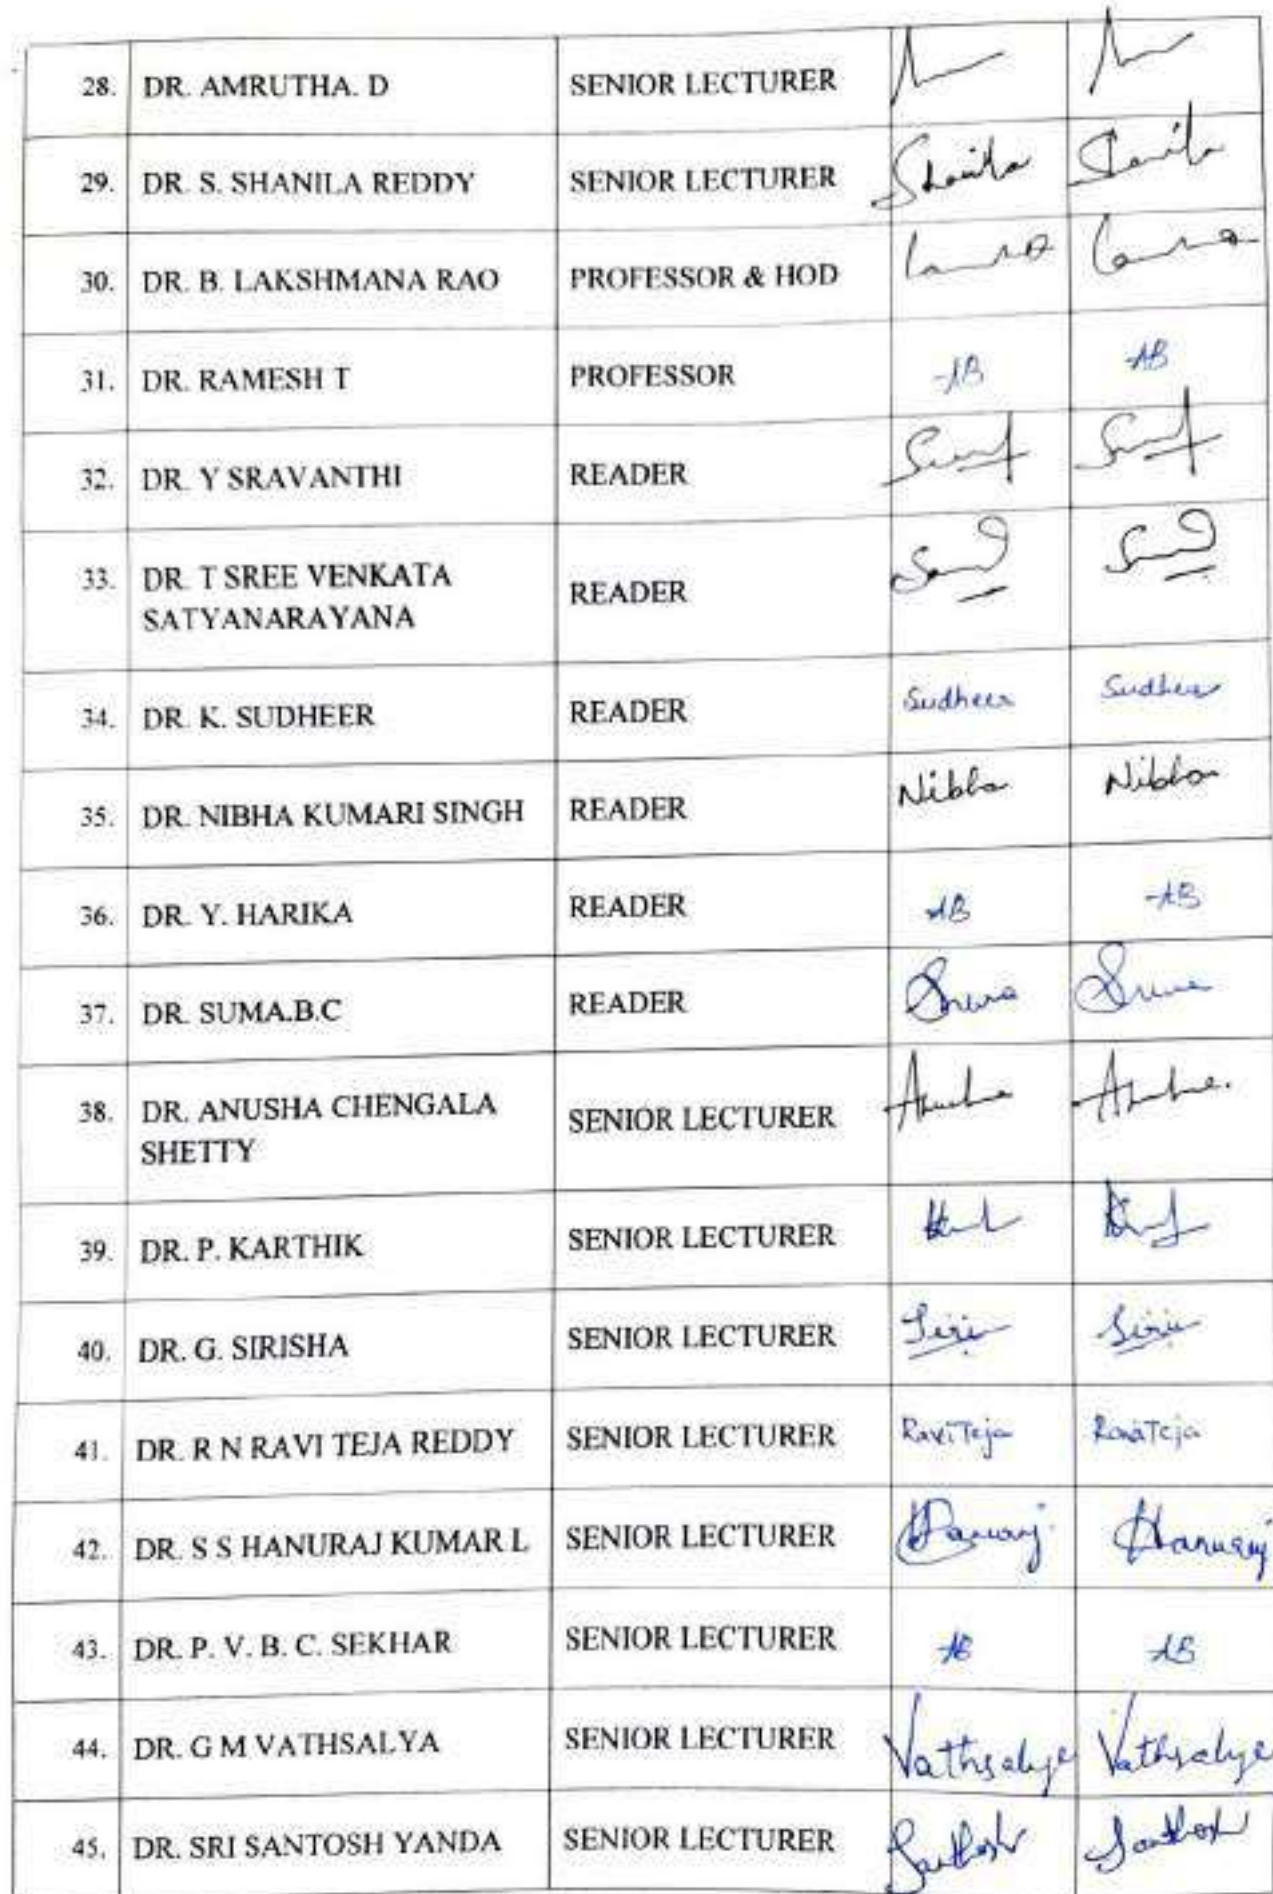 28. DR. AMRUTHA. D SENIOR LECTURER
29. DR. S. SHANILA REDDY SENIOR LECTURER Shanila Shanila
30. DR. B. LAKSHMANA RAO PROFESSOR & HOD
31. DR. RAMESH T PROFESSOR AB AB
32. DR. Y SRAVANTHI READER
33. DR. T SREE VENKATA
SATYANARAYANA READER
34. DR. K. SUDHEER READER Sudheer Sudheer
35. DR. NIBHA KUMARI SINGH READER Nibha Nibha
36. DR. Y. HARIKA READER AB AB
37. DR. SUMA.B.C READER Suma Suma
38. DR. ANUSHA CHENGALA
SHETTY SENIOR LECTURER Anusha Anusha.
39. DR. P. KARTHIK SENIOR LECTURER
40. DR. G. SIRISHA SENIOR LECTURER Siri Siri
41. DR. R N RAVI TEJA REDDY SENIOR LECTURER RaviTeja RaviTeja
42. DR. S S HANURAJ KUMAR L SENIOR LECTURER Hanuraj Hanuraj
43. DR. P. V. B. C. SEKHAR SENIOR LECTURER AB AB
44. DR. G M VATHSALYA SENIOR LECTURER Vathsalya Vathsalya
45. DR. SRI SANTOSH YANDA SENIOR LECTURER Santosh Santosh